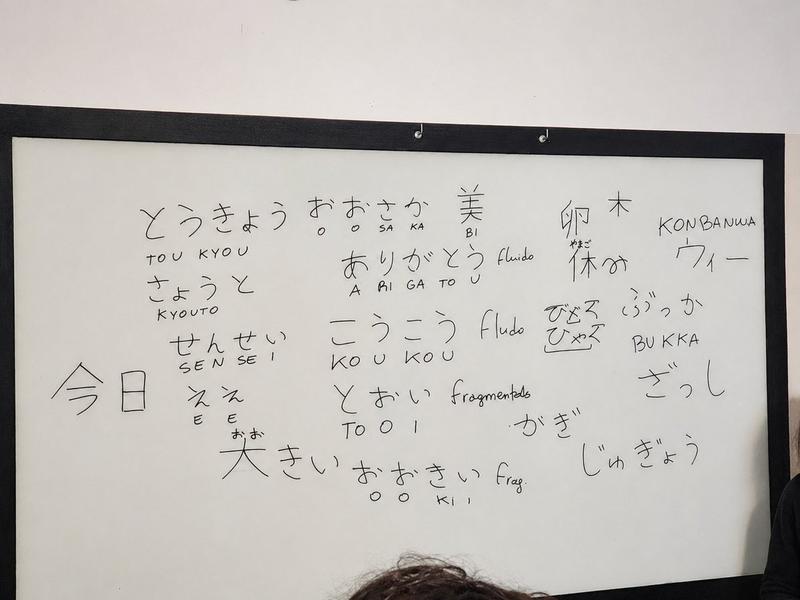 とうきょう おおさか 美 卵 木
TOU KYOU O O SA KA BI KONBANWA
ありがとう fluido 休み ウィー
A RI GA TO U
さょうと
KYOUTO
せんせい こうこう fludo びどズ ぶっか
SEN SE I KO U KO U ひゃズ BUKKA
今日 ええ とおい がぎ ざっし
E E TO O I
おお
大きい おおきい frag. じゅぎょう
O O KI I